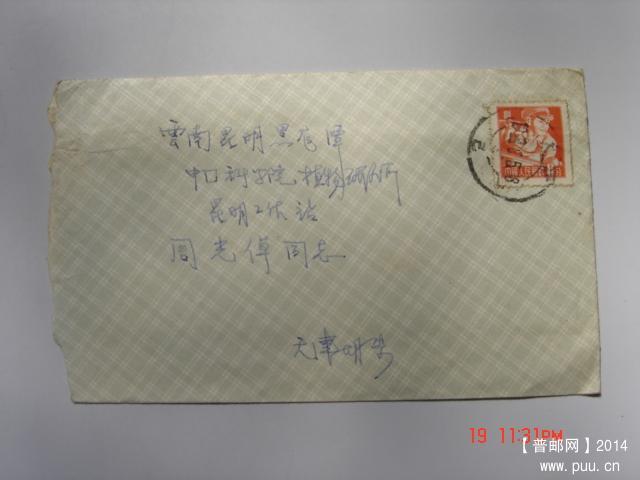 雲南昆明黑龙潭
中国科学院植物研究所
昆明工作站
周光倬同志
天津
中国人民邮政
19 11:31PM
【普邮网】2014
www.puu.cn